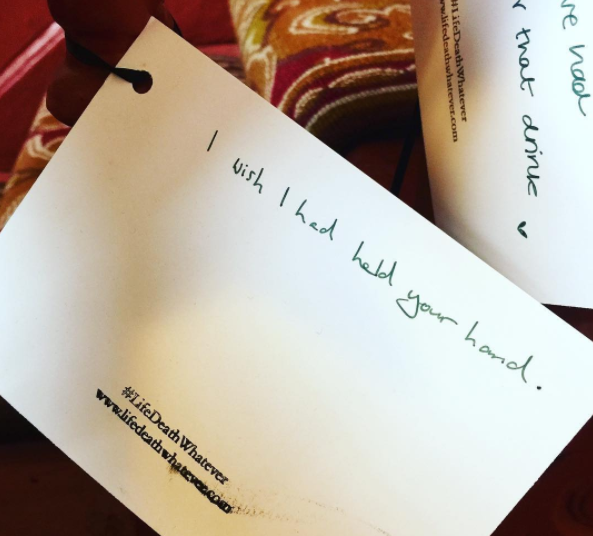 I wish I had held your hand.
#LifeDeathWhatever
www.lifedeathwhatever.com
#LifeDeathWhatever
www.lifedeathwhatever.com
had
that drink